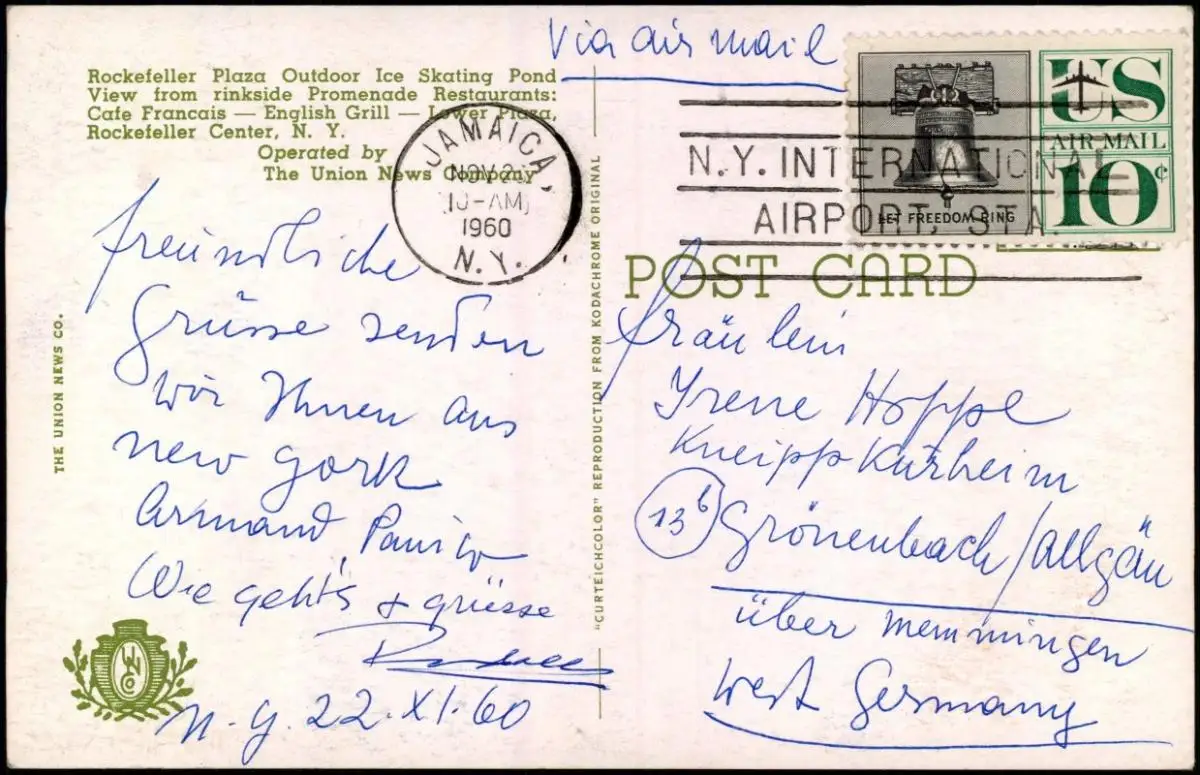 Via air mail
Rockefeller Plaza Outdoor Ice Skating Pond
View from rinkside Promenade Restaurants:
Cafe Francais — English Grill — Lower Plaza,
Rockefeller Center, N. Y.
Operated by
The Union News Company
JAMAICA,
NOV 2
10-AM
1960
N.Y.
N.Y. INTERNATIONAL
AIRPORT, STA.
LET FREEDOM RING
US
AIR MAIL
10¢
POST CARD
freundliche
Grüsse senden
wir Ihnen aus
new york
Armand,
Wie geht's + grüsse
N.Y. 22.XI.60
THE UNION NEWS CO.
UNNCO
"CURTEICHCOLOR" REPRODUCTION FROM KODACHROME ORIGINAL
Fräulein
Irene Hoppe
Kneipp Kurheim
13b Grönenbach/Allgäu
über Memmingen
West Germany